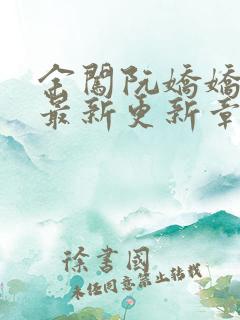 金闺阮嬌嬌
最新更新章
徐書國
未经同意禁止转载